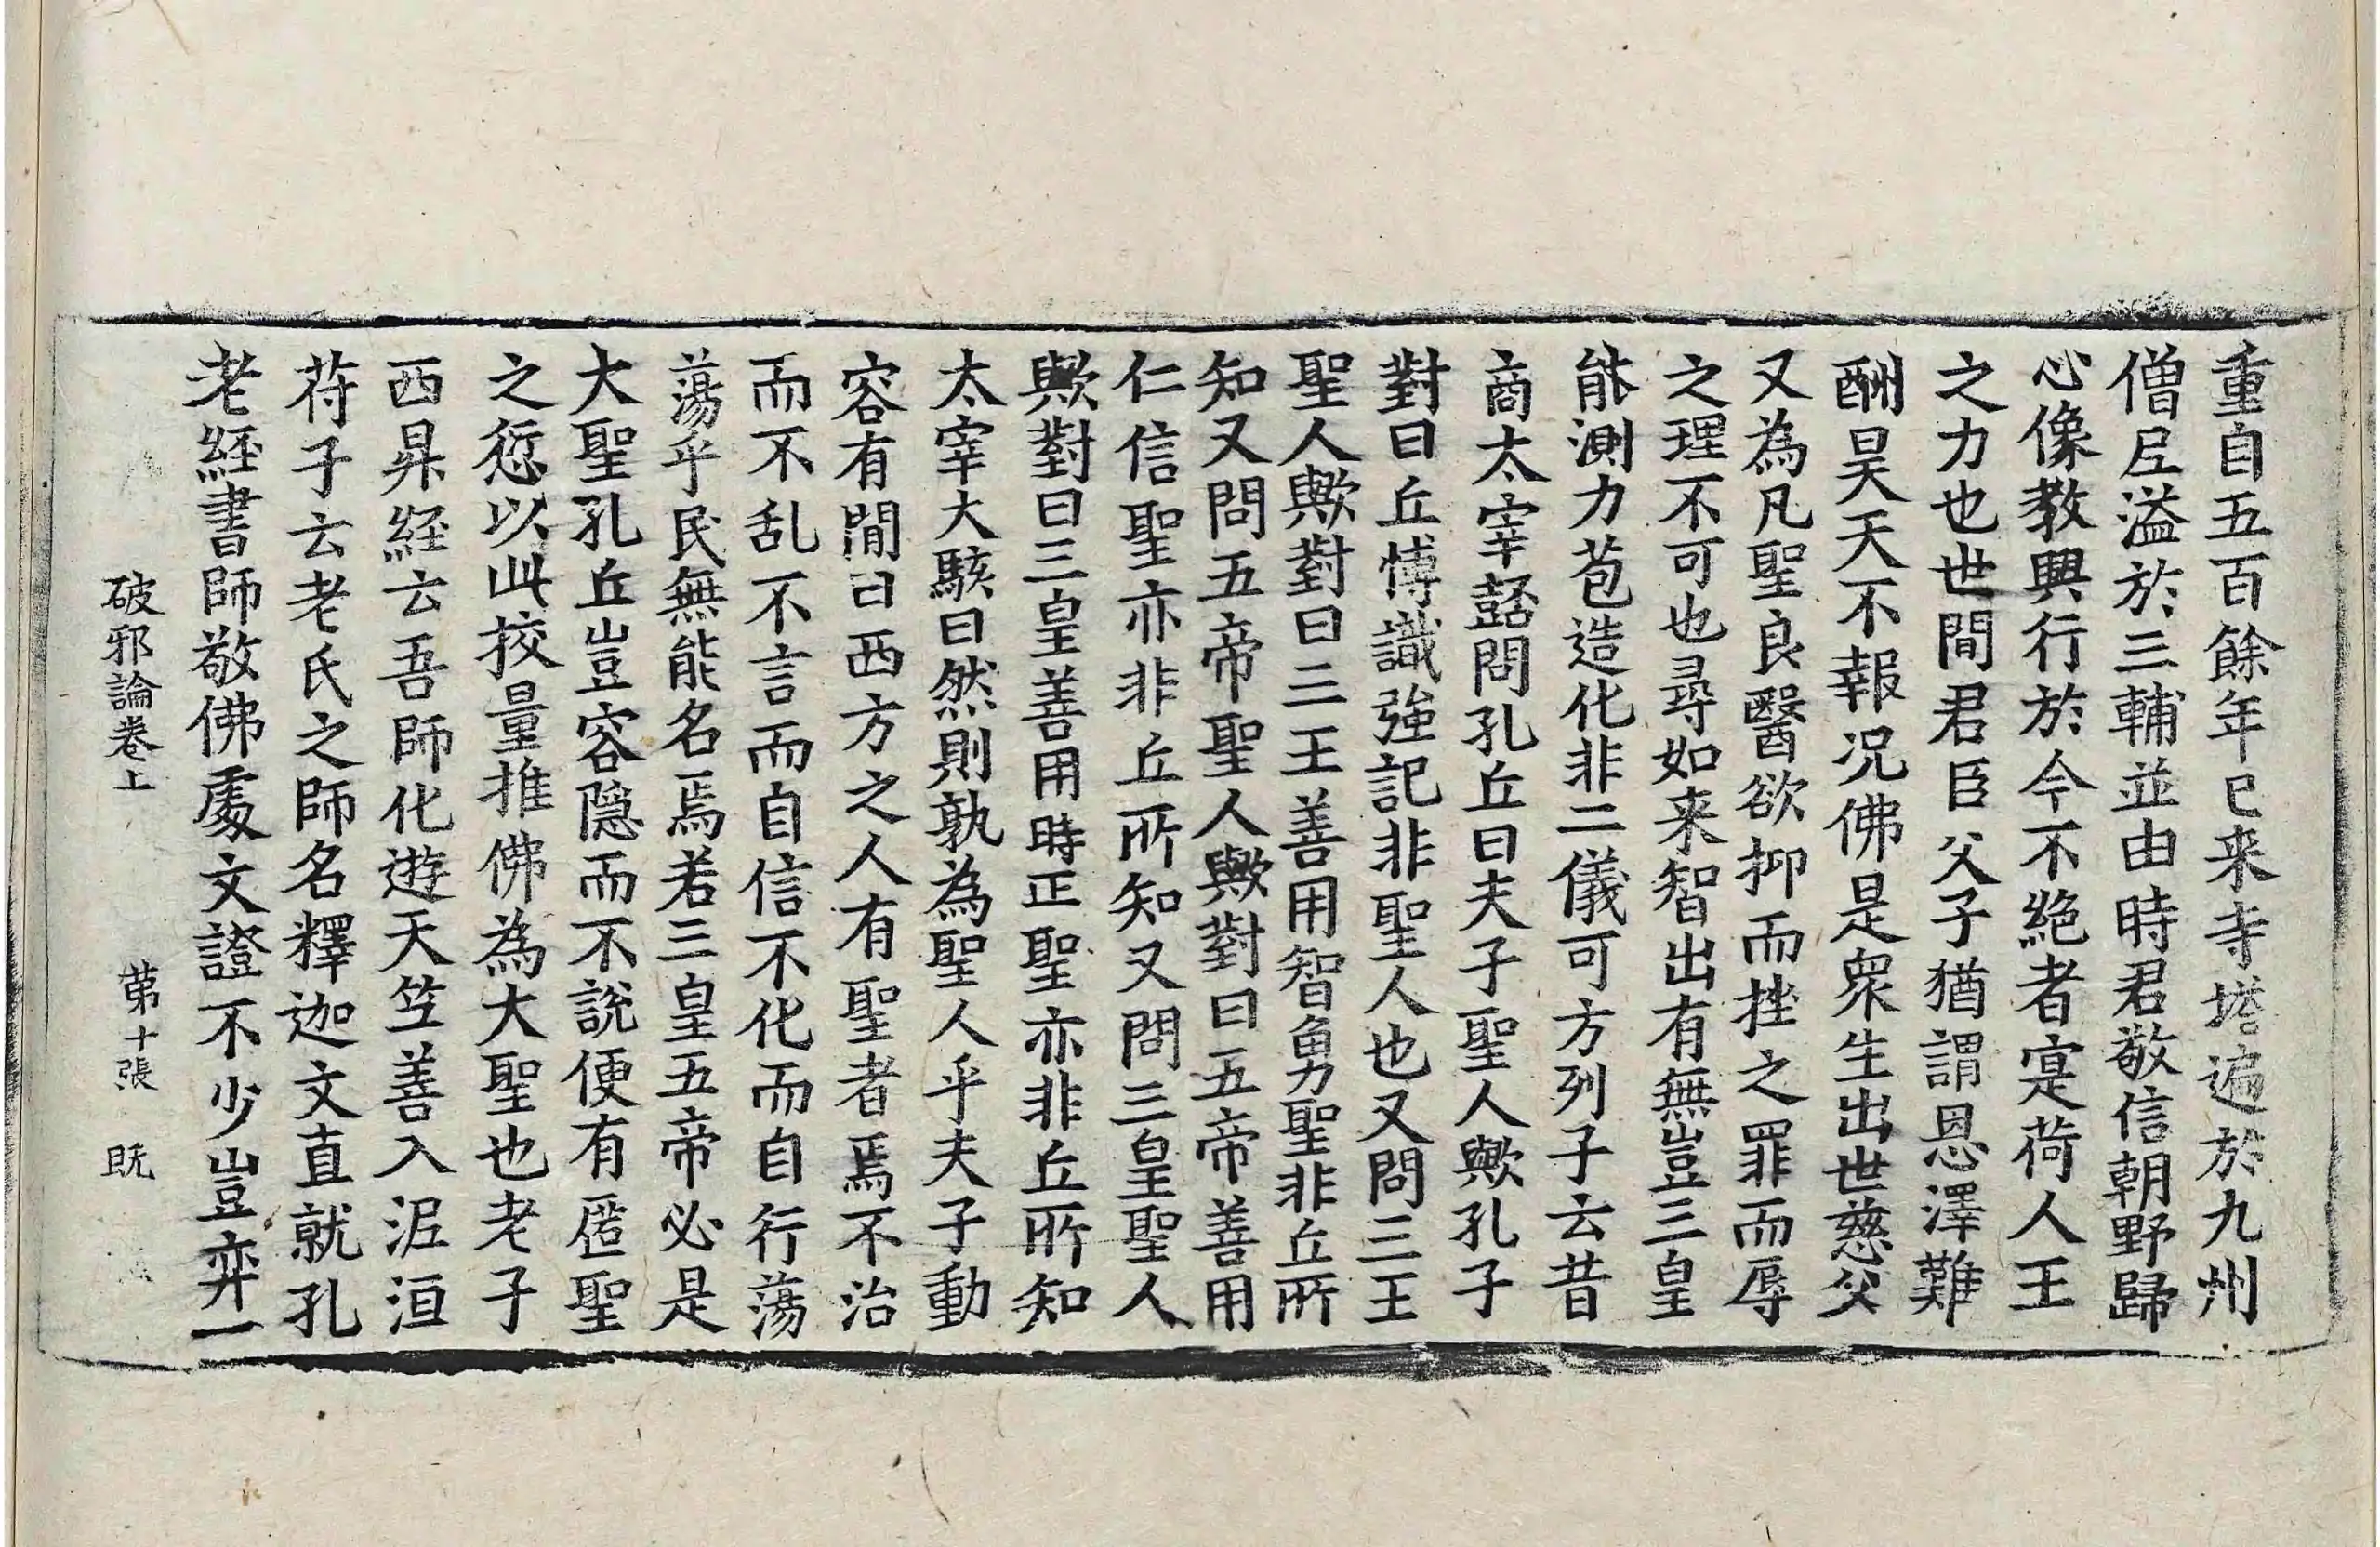 重自五百餘年已来寺塔遍於九州
僧尼溢於三輔並由時君敬信朝野歸
心像教興行於今不絶者寔荷人王
之力也世間君臣父子猶謂恩澤難
酬昊天不報况佛是衆生出世慈父
又為凡聖良醫欲抑而挫之罪而辱
之理不可也尋如来智出有無豈三皇
能測力苞造化非二儀可方列子云昔
商太宰嚭問孔丘曰夫子聖人歟孔子
對曰丘博識強記非聖人也又問三王
聖人歟對曰三王善用智勇聖非丘所
知又問五帝聖人歟對曰五帝善用
仁信聖亦非丘所知又問三皇聖人
歟對曰三皇善用時正聖亦非丘所知
太宰大駭曰然則孰為聖人乎夫子動
容有閒曰西方之人有聖者焉不治
而不乱不言而自信不化而自行蕩
蕩乎民無能名焉若三皇五帝必是
大聖孔丘豈容隠而不說便有匿聖
之愆以此挍量推佛為大聖也老子
西昇經云吾師化遊天竺善入泥洹
苻子云老氏之師名釋迦文直就孔
老經書師敬佛處文證不少豈弈一
破邪論卷上 第十張 既